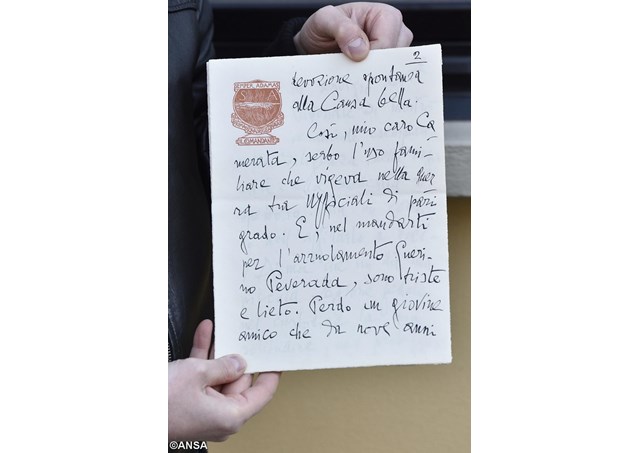 2
devozione spontanea
alla Causa bella.
Così, mio caro Ca-
merata, serbo l'uso fami-
liare che vigeva nella guer-
ra tra Ufficiali di pari
grado. E, nel mandarti
per l'arruolamento Gueri-
no Peverada, sono triste
e lieto. Perdo un giovine
amico che da nove anni
IL COMANDANTE
©ANSA